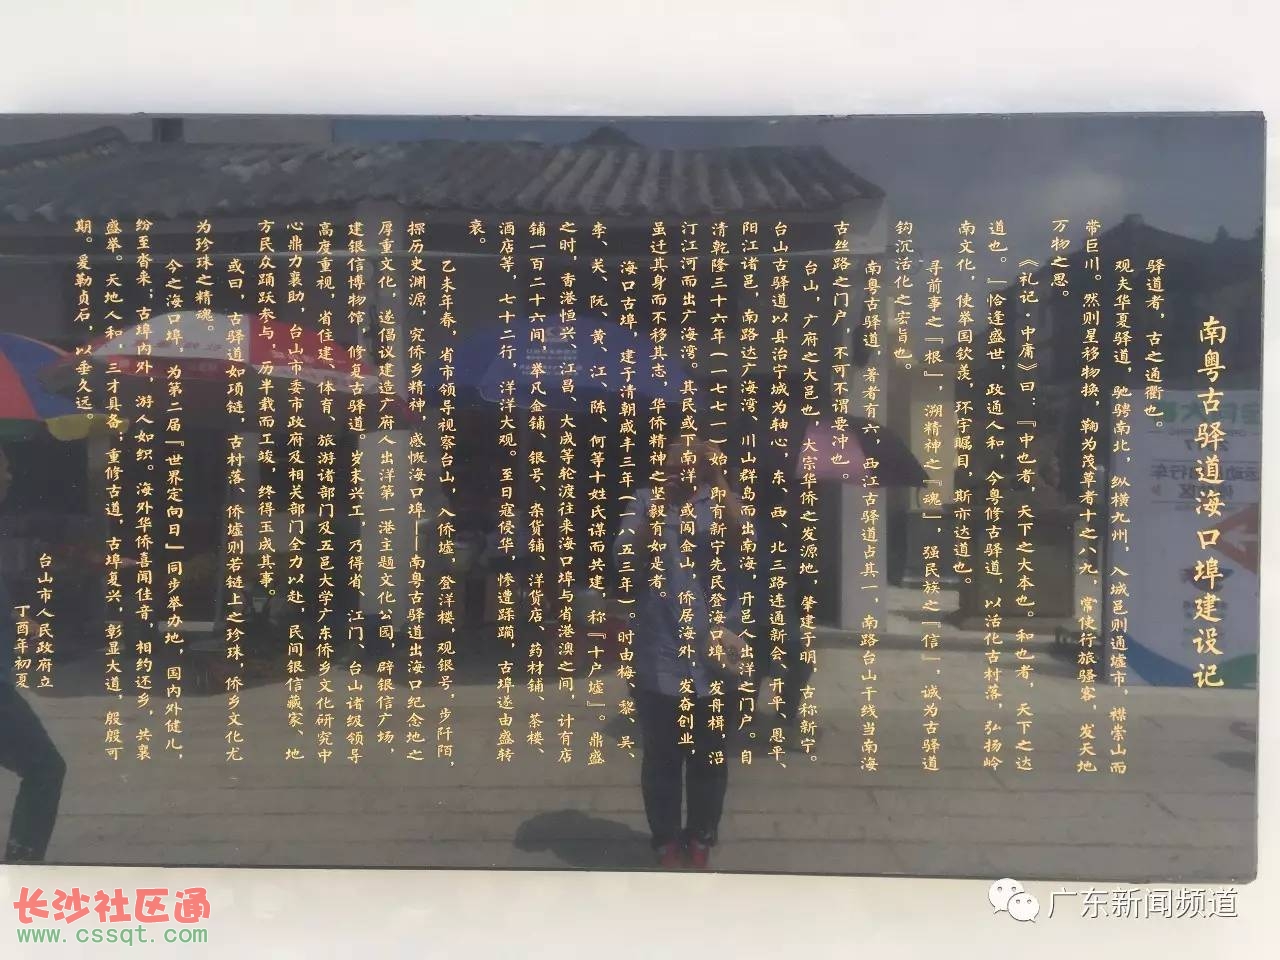 南粤古驿道海口埠建设记
驿道者，古之通衢也。
观夫华夏驿道，驰骋南北，纵横九州，入城邑则通墟市，襟崇山而
带巨川。然则星移物换，鞠为茂草者十之八九，常使行旅骚客，发天地
万物之思。
《礼记·中庸》曰：『中也者，天下之大本也。和也者，天下之达
道也。』恰逢盛世，政通人和，今粤修古驿道，以活化古村落，弘扬岭
南文化，使举国钦羡，环宇瞩目，斯亦达道也。
寻前事之『根』，溯精神之『魂』，强民族之『信』，诚为古驿道
钩沉活化之宏旨也。
南粤古驿道，著者有六，西江古驿道占其一，南路台山干线当南海
古丝路之门户，不可不谓要冲也。
台山，广府之大邑也，大宗华侨之发源地，肇建于明，古称新宁。
台山古驿道以县治宁城为轴心，东、西、北三路连通新会、开平、恩平、
阳江诸邑，南路达广海湾、川山群岛而出南海，开邑人出洋之门户。自
清乾隆三十六年（一七七一）始，即有新宁先民登海口埠，发舟楫，沿
汀江河而出广海湾。其民或下南洋，或闯金山，侨居海外，发奋创业，
虽迁其身而不移其志，华侨精神之坚毅有如是者。
海口古埠，建于清朝咸丰三年（一八五三年）。时由梅、黎、吴、
李、关、阮、黄、江、陈、何等十姓氏谋而共建，称『十户墟』。鼎盛
之时，香港恒兴、江昌、大成等轮渡往来海口埠与省港澳之间，计有店
铺一百二十六间，举凡金铺、银号、杂货铺、洋货店、药材铺、茶楼、
酒店等，七十二行，洋洋大观。至日寇侵华，惨遭蹂躏，古埠遂由盛转
衰。
乙未年春，省市领导视察台山，入侨墟，登洋楼，观银号，步阡陌，
探历史渊源，究侨乡精神，感慨海口埠——南粤古驿道出海口纪念地之
厚重文化，遂倡议建造广府人出洋第一港主题文化公园，辟银信广场，
建银信博物馆，修复古驿道。岁末兴工，乃得省、江门、台山诸级领导
高度重视，省住建、体育、旅游诸部门及五邑大学广东侨乡文化研究中
心鼎力襄助，台山市委市政府及相关部门全力以赴，民间银信藏家、地
方民众踊跃参与，历半载而工竣，终得玉成其事。
或曰，古驿道如项链，古村落、侨墟则若链上之珍珠，侨乡文化尤
为珍珠之精魂。
今之海口埠，为第二届『世界定向日』同步举办地，国内外健儿，
纷至沓来；古埠内外，游人如织。海外华侨喜闻佳音，相约还乡，共襄
盛举。天地人和，三才具各；重修古道，古埠复兴，彰显大道，殷殷可
期。爰勒贞石，以垂久远。
台山市人民政府立
丁酉年初夏
长沙社区通
www.cssqt.com
广东新闻频道